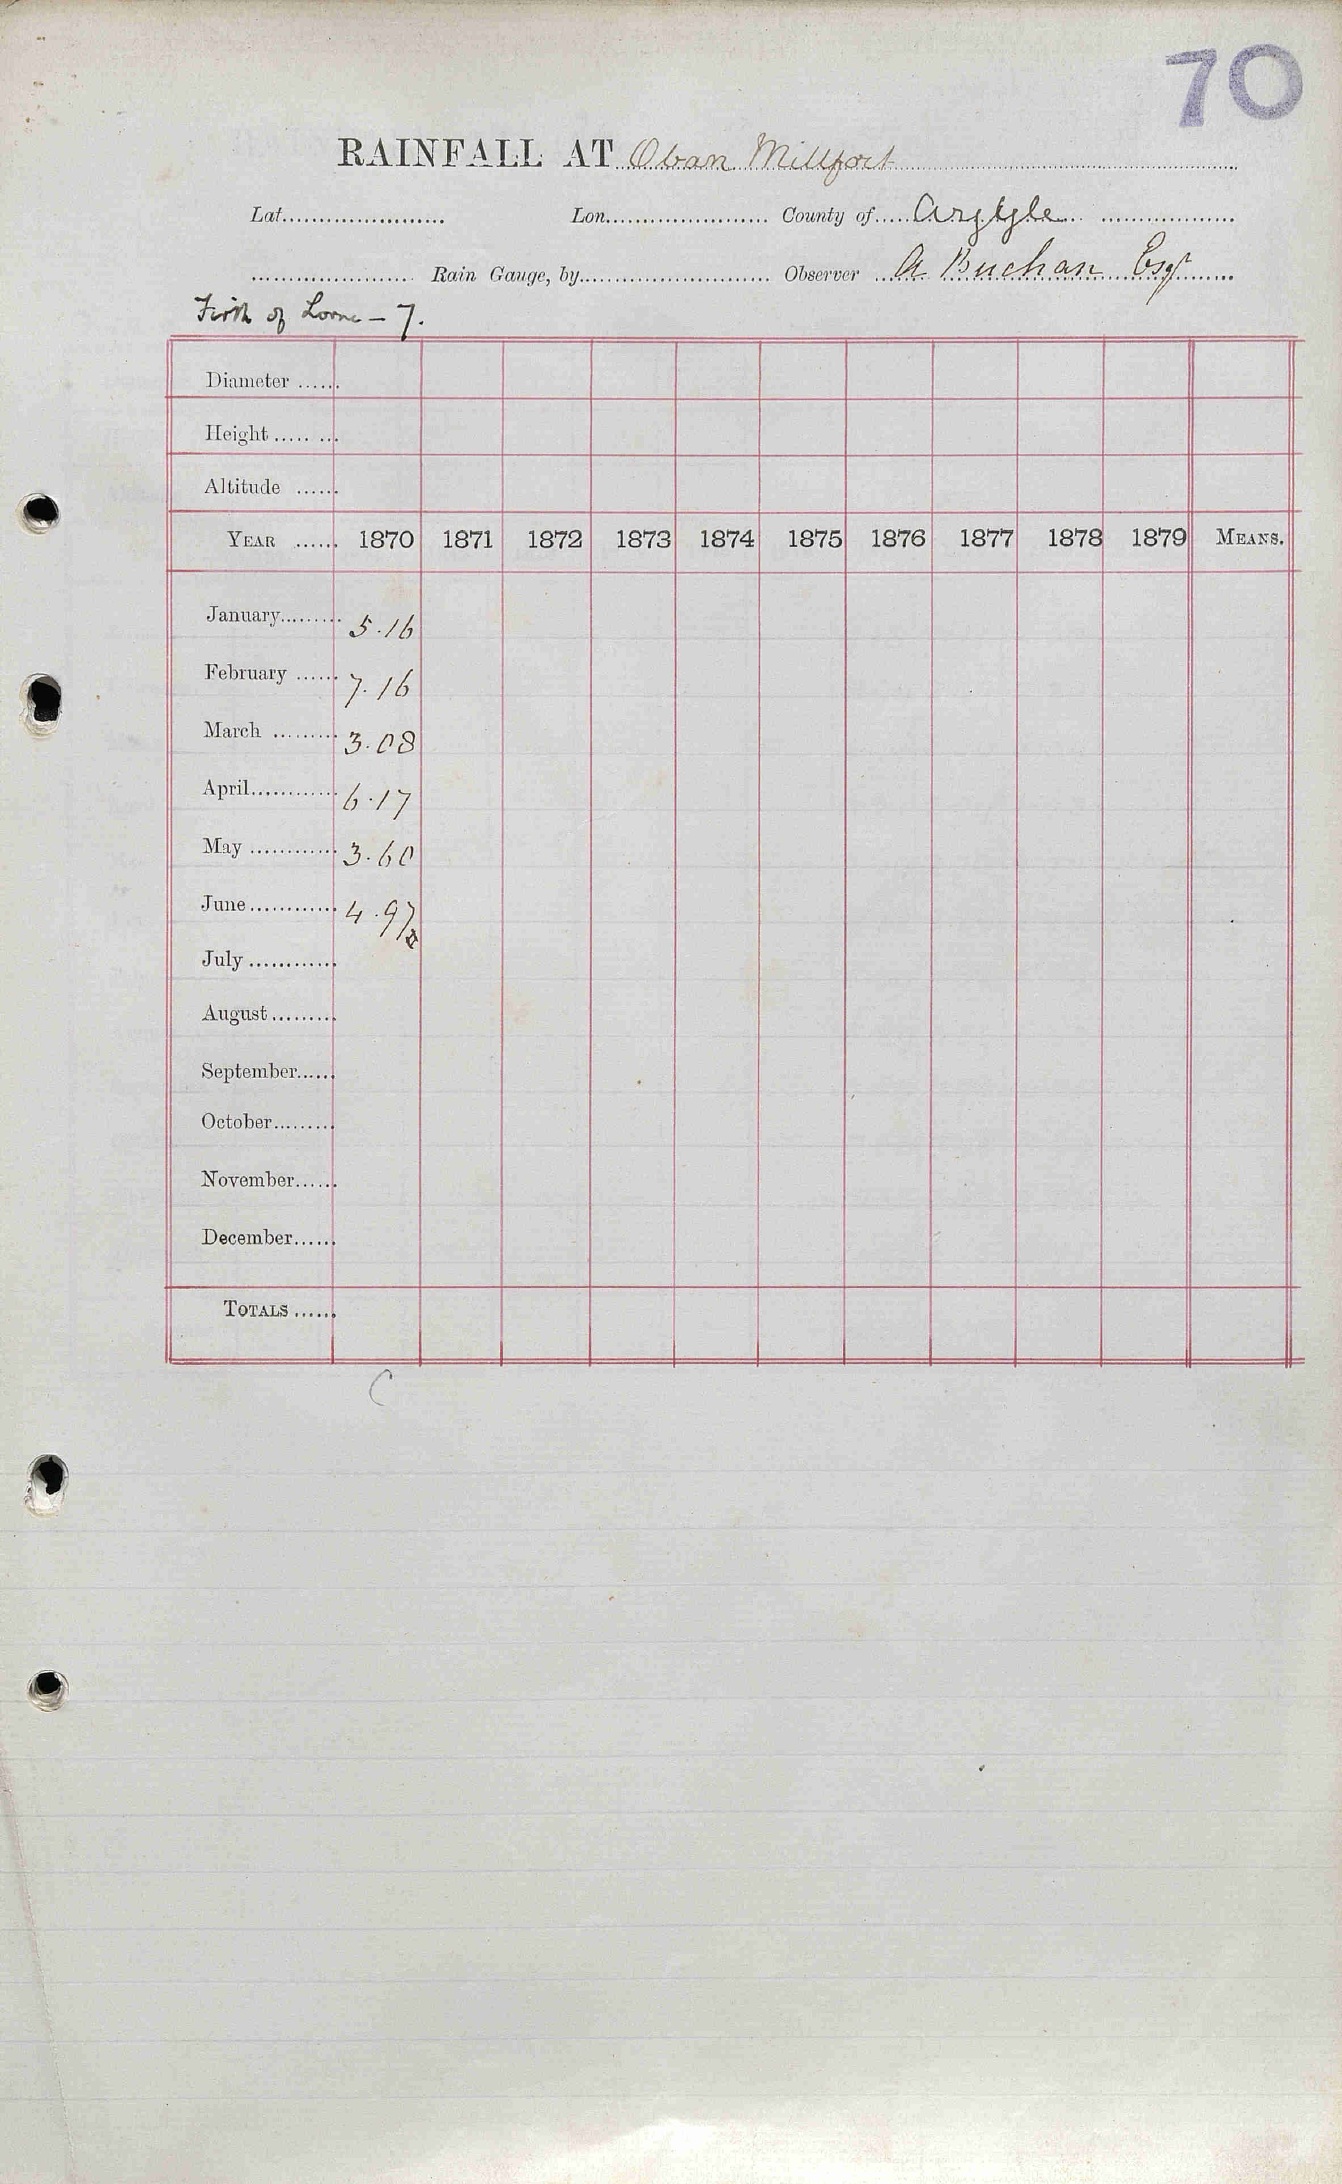 70
RAINFALL AT Oban Millfort
Lat. Lon. County of Argyle
Rain Gauge, by Observer A Buchan Esqr
Firth of Lorne - 7.
Diameter
Height
Altitude
YEAR 1870 1871 1872 1873 1874 1875 1876 1877 1878 1879 MEANS.
January 5.16
February 7.16
March 3.08
April 6.17
May 3.60
June 4.97
July
August
September
October
November
December
TOTALS
C